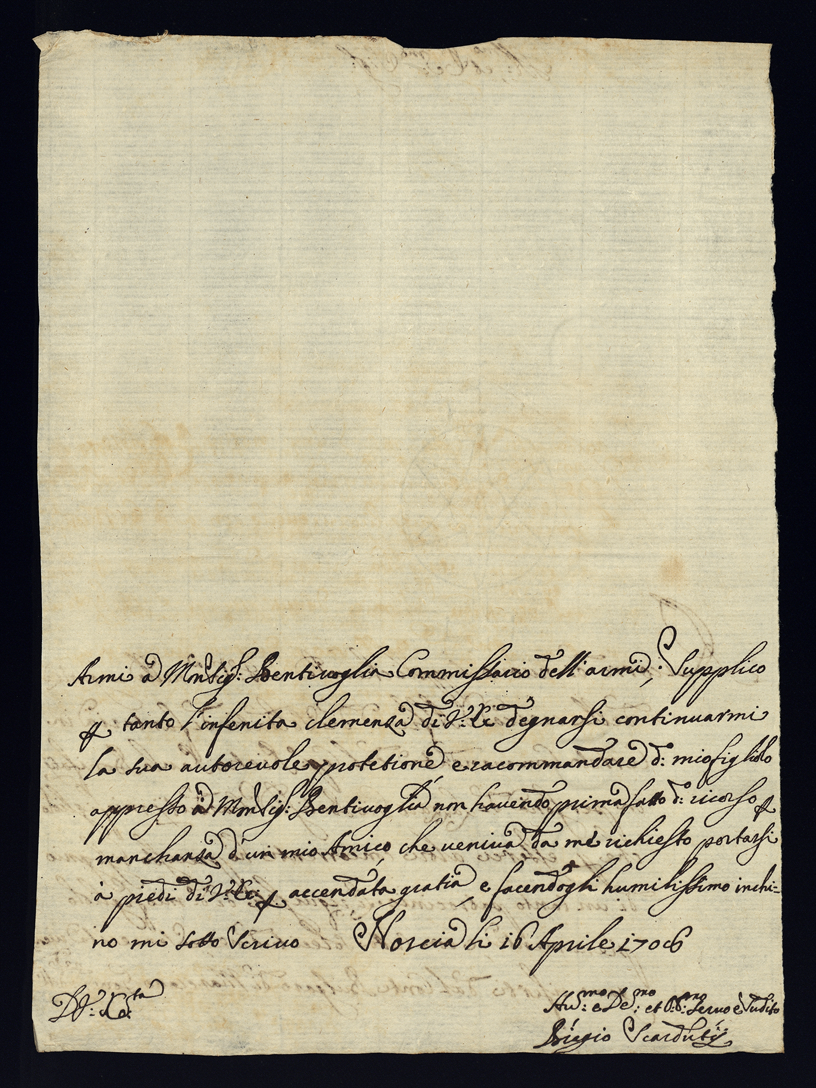 Armi à Monsig.r Bentivoglia Commissario dell'armi; Supplico
p tanto l'infenita clemenza di V.ra Ecc. degnarsi continuarmi
la sua autorevole protetione e racommandare d: mio figliolo
appresso à Monsig: Bentivoglia non havendo prima fatto d: ricorso p
manchanza d'un mio Amico che veniva da me richiesto portarsi
à piedi di V.ra Ecc. p accendata gratia, e facendogli humilissimo inchi=
no mi sotto scrivo Norcia li 16 Aprile 1706
D V.
Hu.mo e De.mo et Ob.mo Servo e Sudito
Biagio Scarduty